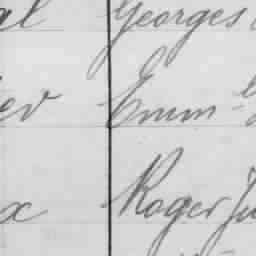 al Georges
ev Emm
x Roger Ju